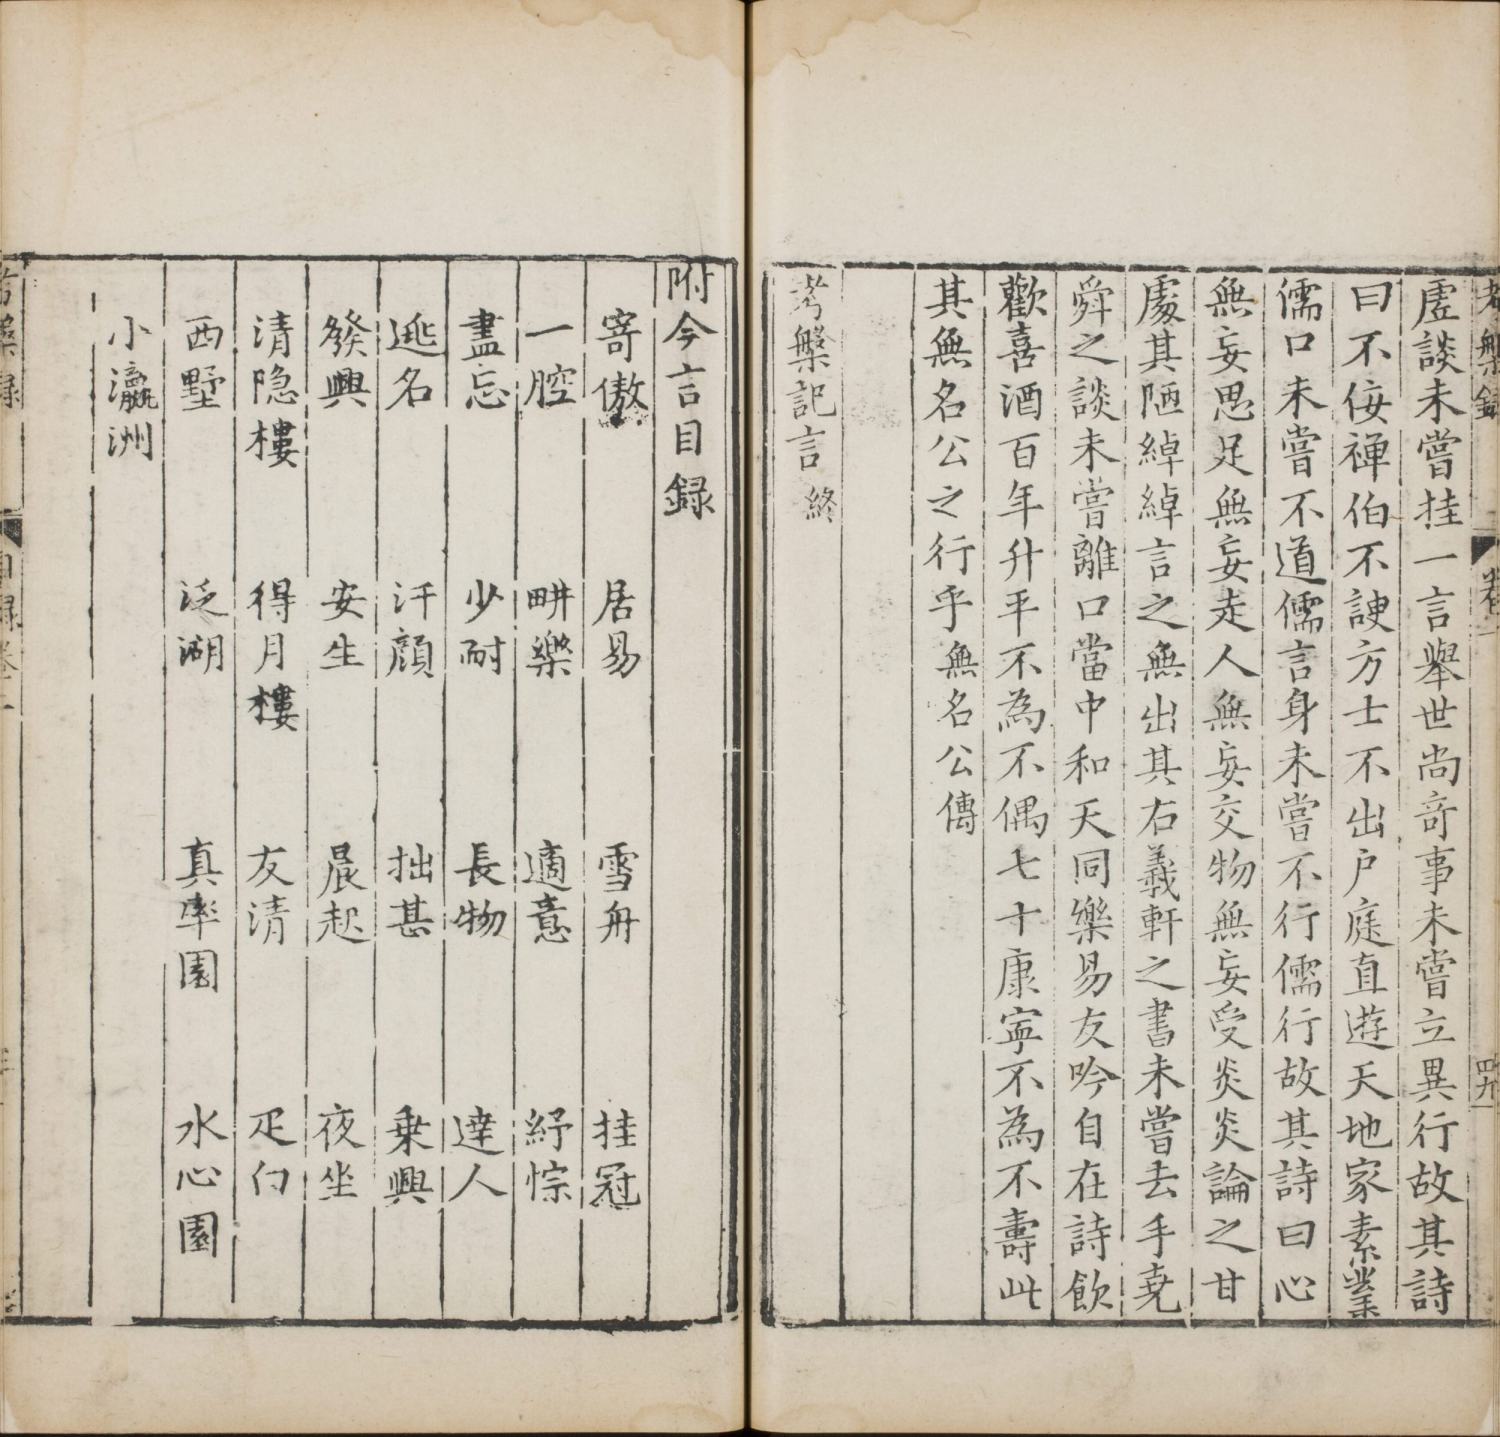 考槃錄
卷一
四九
虗談未嘗挂一言舉世尚竒事未嘗立異行故其詩
曰不佞禅伯不諛方士不出户庭直遊天地家素業
儒口未嘗不道儒言身未嘗不行儒行故其詩曰心
無妄思足無妄走人無妄交物無妄受炎炎論之甘
處其陋綽綽言之無出其右羲軒之書未嘗去手堯
舜之談未嘗離口當中和天同樂易友吟自在詩飲
歡喜酒百年升平不為不偶七十康寧不為不壽此
其無名公之行乎無名公傳
考槃記言 終
附今言目録
寄傲 居易 雪舟 挂冠
一腔 畊樂 適意 紓悰
盡忘 少耐 長物 達人
逃名 汗顔 拙甚 乗興
發興 安生 晨起 夜坐
清隐樓 得月樓 友清 疋白
西墅 泛湖 真率園 水心園
小瀛洲
考槃録
目録卷二